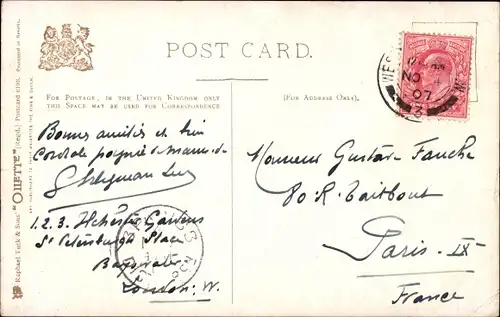 POST CARD.
FOR POSTAGE, IN THE UNITED KINGDOM ONLY
THIS SPACE MAY BE USED FOR CORRESPONDENCE
(FOR ADDRESS ONLY).
Raphael Tuck & Sons' "OILETTE" [Regd.] Postcard
NO 4
07
Bonnes amitiés et bien
1.2.3. Ilchester Gardens
St Petersburgh Place
Bayswater
London. W.
Monsieur Gustave Fauche
80. R. Taitbout
Paris. IX
France